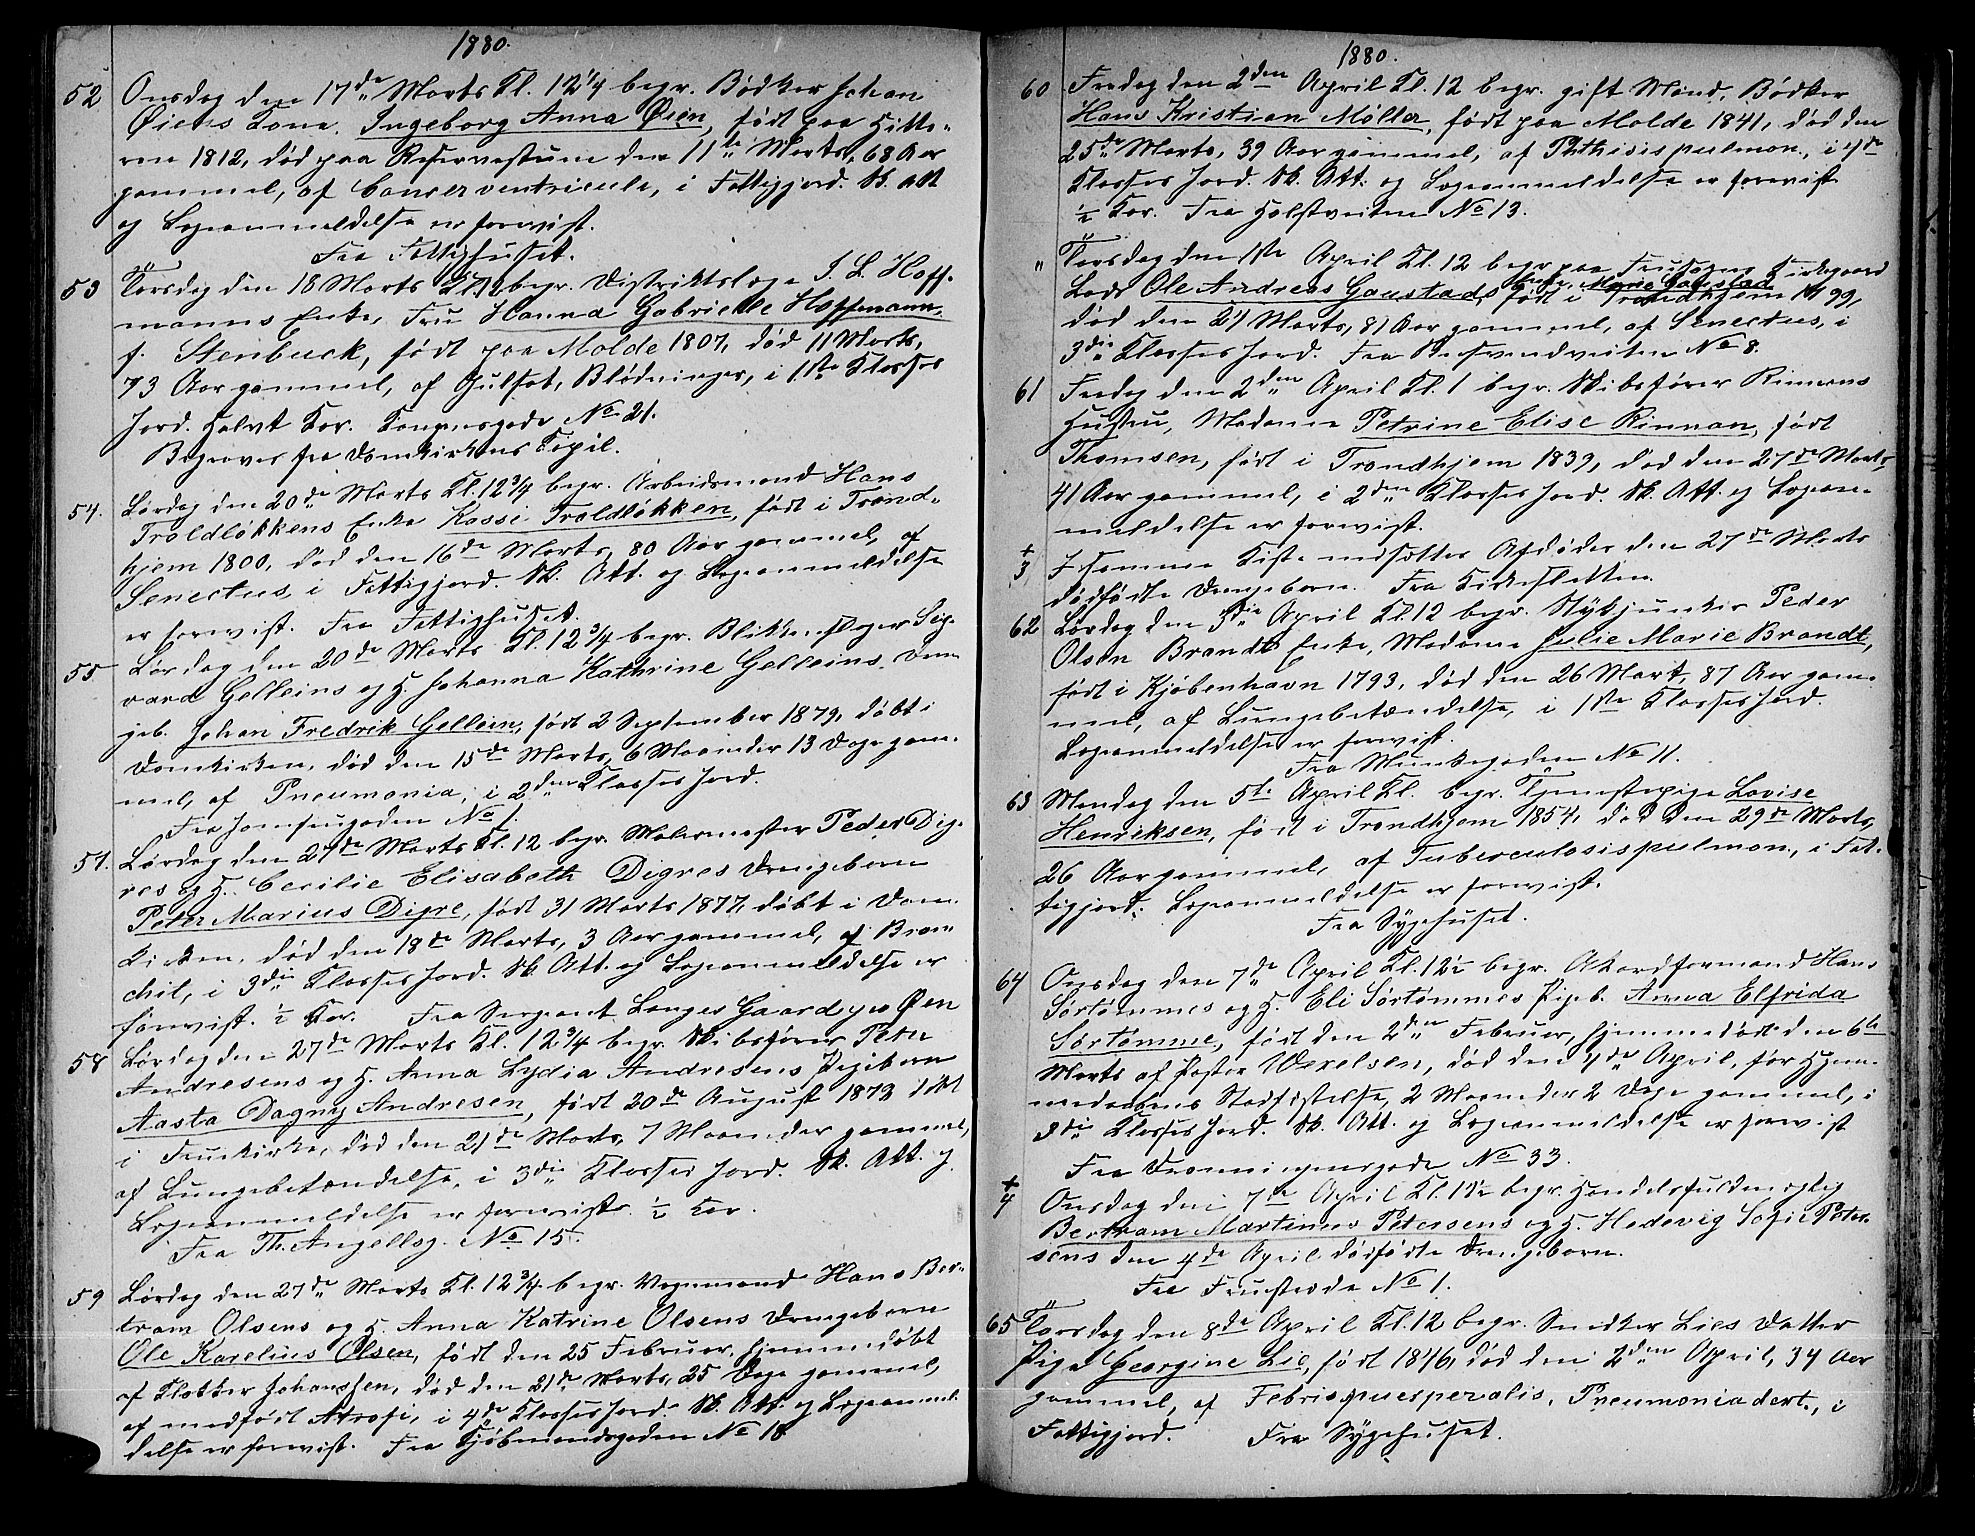 1880.
52 Onsdag den 17de Marts Kl. 12¼ begr. Bødker Johan
Øiens Kone, Ingeborg Anna Øien, født paa Hitte-
ren 1812, død paa Reservestuen den 11te Marts, 68 Aar
gammel, af Cancer ventriculi, i Fattigjord. Sk. Att
og Lægeanmeldelse er forevist.
Fra Fattighuset.
53 Torsdag den 18 Marts Kl. 12 begr. Distriktslæge J. L. Hoff-
manns Enke, Fru Hanna Gabrielle Hoffmann,
f. Stenbuck, født paa Molde 1807, død 11 Marts,
73 Aar gammel, af Gulsot, Blødninger, i 1ste Klasses
Jord. Halvt Kor. Kongensgade No 21.
Begraves fra Domkirkens Kapel.
54. Lørdag den 20de Marts Kl. 12¾ begr. Arbeidsmand Hans
Troldløkkens Enke Kassi Troldløkken, født i Trond-
hjem 1800, død den 16de Marts, 80 Aar gammel, af
Senectus, i Fattigjord. Sk. Att. og Lægeanmeldelse
er forevist. Fra Fattighuset.
55 Lørdag den 20de Marts Kl. 12¾ begr. Blikkenslager Sig-
vard Gelleins og H. Johanna Kathrine Gelleins Dren-
geb. Johan Fredrik Gellein, født 2 September 1879, døbt i
Domkirken, død den 15de Marts, 6 Maaneder 13 Dage gam-
mel, af Pneumonia, i 2den Klasses Jord.
Fra Jomfrugaden No 1.
57. Lørdag den 27de Marts Kl. 12 begr. Malermester Peder Dig-
res og H. Cecilie Elisabeth Digres Drengebarn
Peter Marius Digre, født 31 Marts 1877, døbt i Dom-
kirken, død den 18de Marts, 3 Aar gammel, af Bron-
chit, i 3die Klasses Jord. Sk. Att. og Lægeanmeldelse er
forevist. ½ Kor. Fra Sergeant Langes Gaard paa Øen
58 Lørdag den 27de Marts Kl. 12¾ begr. Skibsfører Peter
Andresens og H. Anna Lydia Andresens Pigebarn
Aasta Dagny Andresen, født 20de August 1879 døbt
i Fruekirke, død den 21de Marts, 7 Maaneder gammel,
af Lungebetændelse, i 3die Klasses Jord. Sk. Att. og
Lægeanmeldelse er forevist. ½ Kor.
Fra Th. Angellsg. No 15.
59 Lørdag den 27de Marts Kl. 12¾ begr. Vognmand Hans Ber-
tram Olsens og H. Anna Katrine Olsens Drengebarn
Ole Karelius Olsen, født den 25 Februar, hjemmedøbt
af Klokker Johanssen, død den 21de Marts, 25 Dage gammel,
af medfødt Atrofi, i 4de Klasses Jord. Sk. Att. og Lægeanmel-
delse er forevist. Fra Kjøbmandsgaden No 18
1880.
60 Fredag den 2den April Kl. 12 begr. gift Mand, Bødker
Hans Kristian Møller, født paa Molde 1841, død den
25de Marts, 39 Aar gammel, af Phthisis pulmon., i 4de
Klasses Jord. Sk. Att. og Lægeanmeldelse er forevist
½ Kor. Fra Holstveiten No 13.
" Torsdag den 1ste April Kl. 12 begr. paa Frue Sogns Kirkegaard
Lods Ole Andreas Gaustads Enke, Marie Gaustad født i Trondhjem 1799,
død den 27 Marts, 81 Aar gammel, af Senectus, i
3die Klasses Jord. Fra No 8.
61 Fredag den 2den April Kl. 1 begr. Skibsfører Rinnans
Hustru, Madame Petrine Elise Rinnan, født
Thomsen, født i Trondhjem 1839, død den 27de Marts
41 Aar gammel, i 2den Klasses Jord. Sk. Att. og Lægean-
meldelse er forevist.
+
3 I samme Kiste nedsættes Afdødes den 27de Marts
dødfødte Drengebarn. Fra Kirkesletten.
62 Lørdag den 3die April Kl. 12 begr. Stykjunker Peder
Olsen Brandt Enke, Madame Julie Marie Brandt,
født i Kjøbenhavn 1793, død den 26 Mart, 87 Aar gam-
mel, af Lungebetændelse, i 1ste Klasses Jord.
Lægeanmeldelse er forevist.
Fra Munkegaden No 11.
63 Mandag den 5te April Kl. begr. Tjenestepige Lovise
Henriksen, født i Trondhjem 1854, død den 29de Marts,
26 Aar gammel, af Tuberculosis pulmon., i Fat-
tigjord. Lægeanmeldelse er forevist.
Fra Sygehuset.
64 Onsdag den 7de April Kl. 12½ begr. Akordformand Hans
Sørtømmes og H. Eli Sørtømmes Pigeb. Anna Elfrida
Sørtømme, født den 2den Februar, hjemmedøbt den 6te
Marts af Pastor Wexelsen, død den 4de April, før Hjem-
medaabens Stadfæstelse, 2 Maaneder 2 Dage gammel, i
3die Klasses Jord. Sk. Att. og Lægeanmeldelse er forevist
Fra Dronningensgade No 33.
+
4 Onsdag den 7de April Kl. 12½ begr. Handelsfuldmægtig
Bertram Martinus Petersens og H. Hedevig Sofie Peter-
sens den 4de April dødfødte Drengebarn.
Fra Fruestræde No 1.
65 Torsdag den 8de April Kl. 12 begr. Snedker Lies Datter
Pige Georgine Lie, født 1846, død den 2den April, 34 Aar
gammel, af Febris puerperalis, Pneumonia dext., i
Fattigjord. Fra Sygehuset.